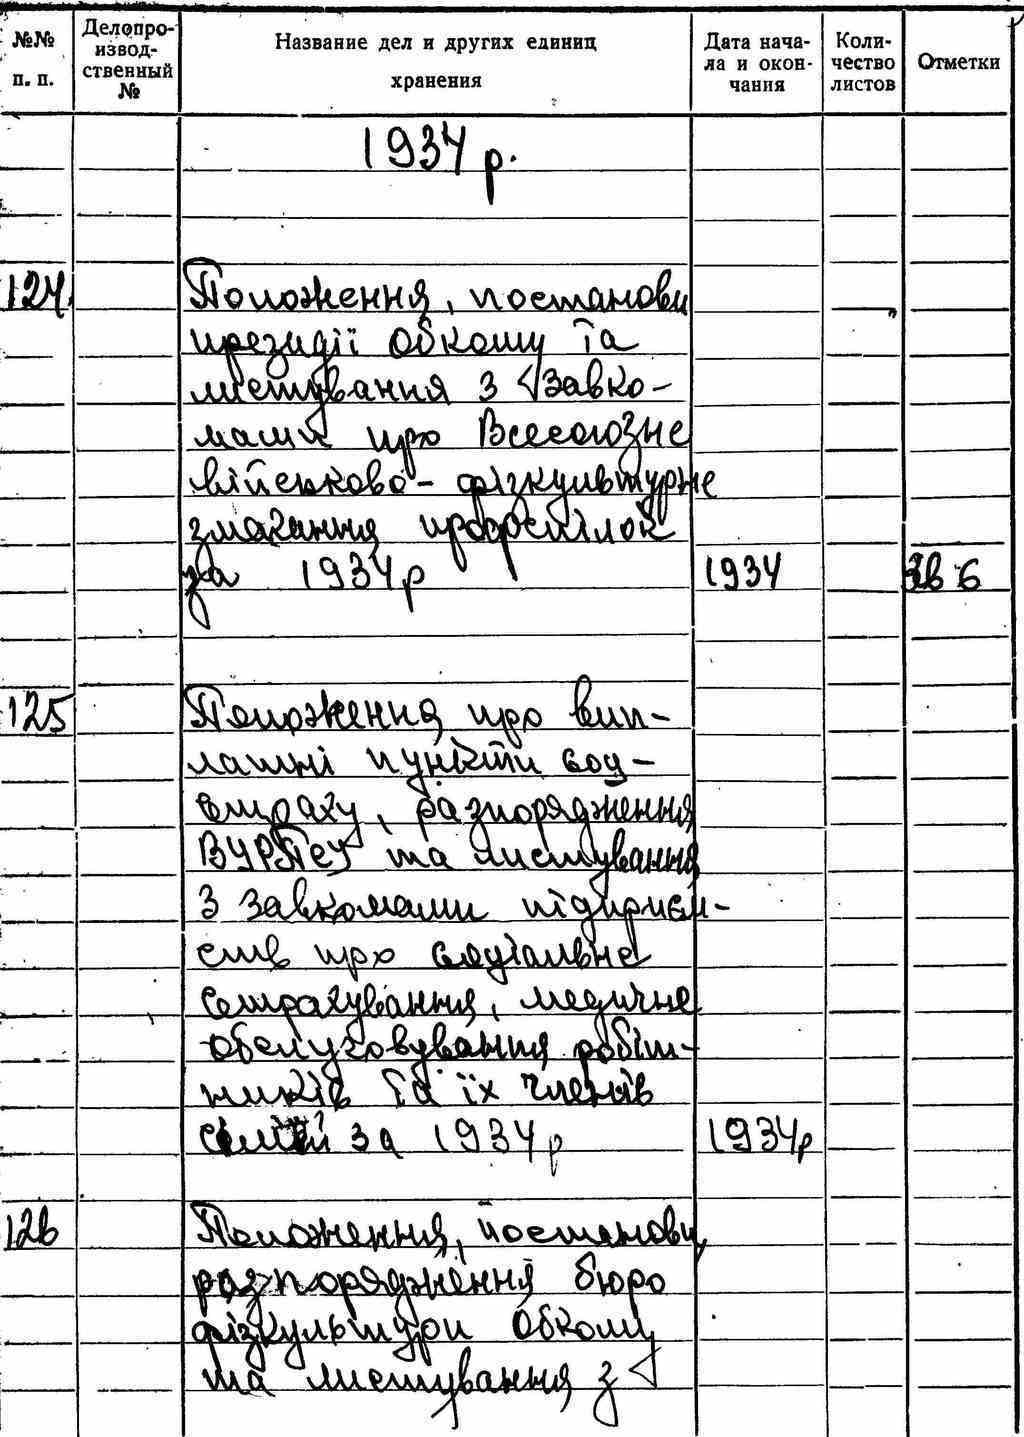 №№ п. п.
Делопро-извод-ственный №
Название дел и других единиц хранения
Дата нача-ла и окон-чания
Коли-чество листов
Отметки
1934 р.
124. Положення, постанови
президії Обкому та
листування з Завко-
мами про Всесоюзне
військово-фізкультурне
змагання профспілок
за 1934 р 1934
125 Положення про вип-
латні пункти соц-
страху, разпорядження
ВУРПСУ та листування
з завкомами підприєм-
ств про соціальне
страхування, медичне
обслуговування робіт-
ників та їх членів
сімей за 1934 р 1934р
126 Положення, постанови,
разпорядження бюро
фізкультури Обкому
та листування з